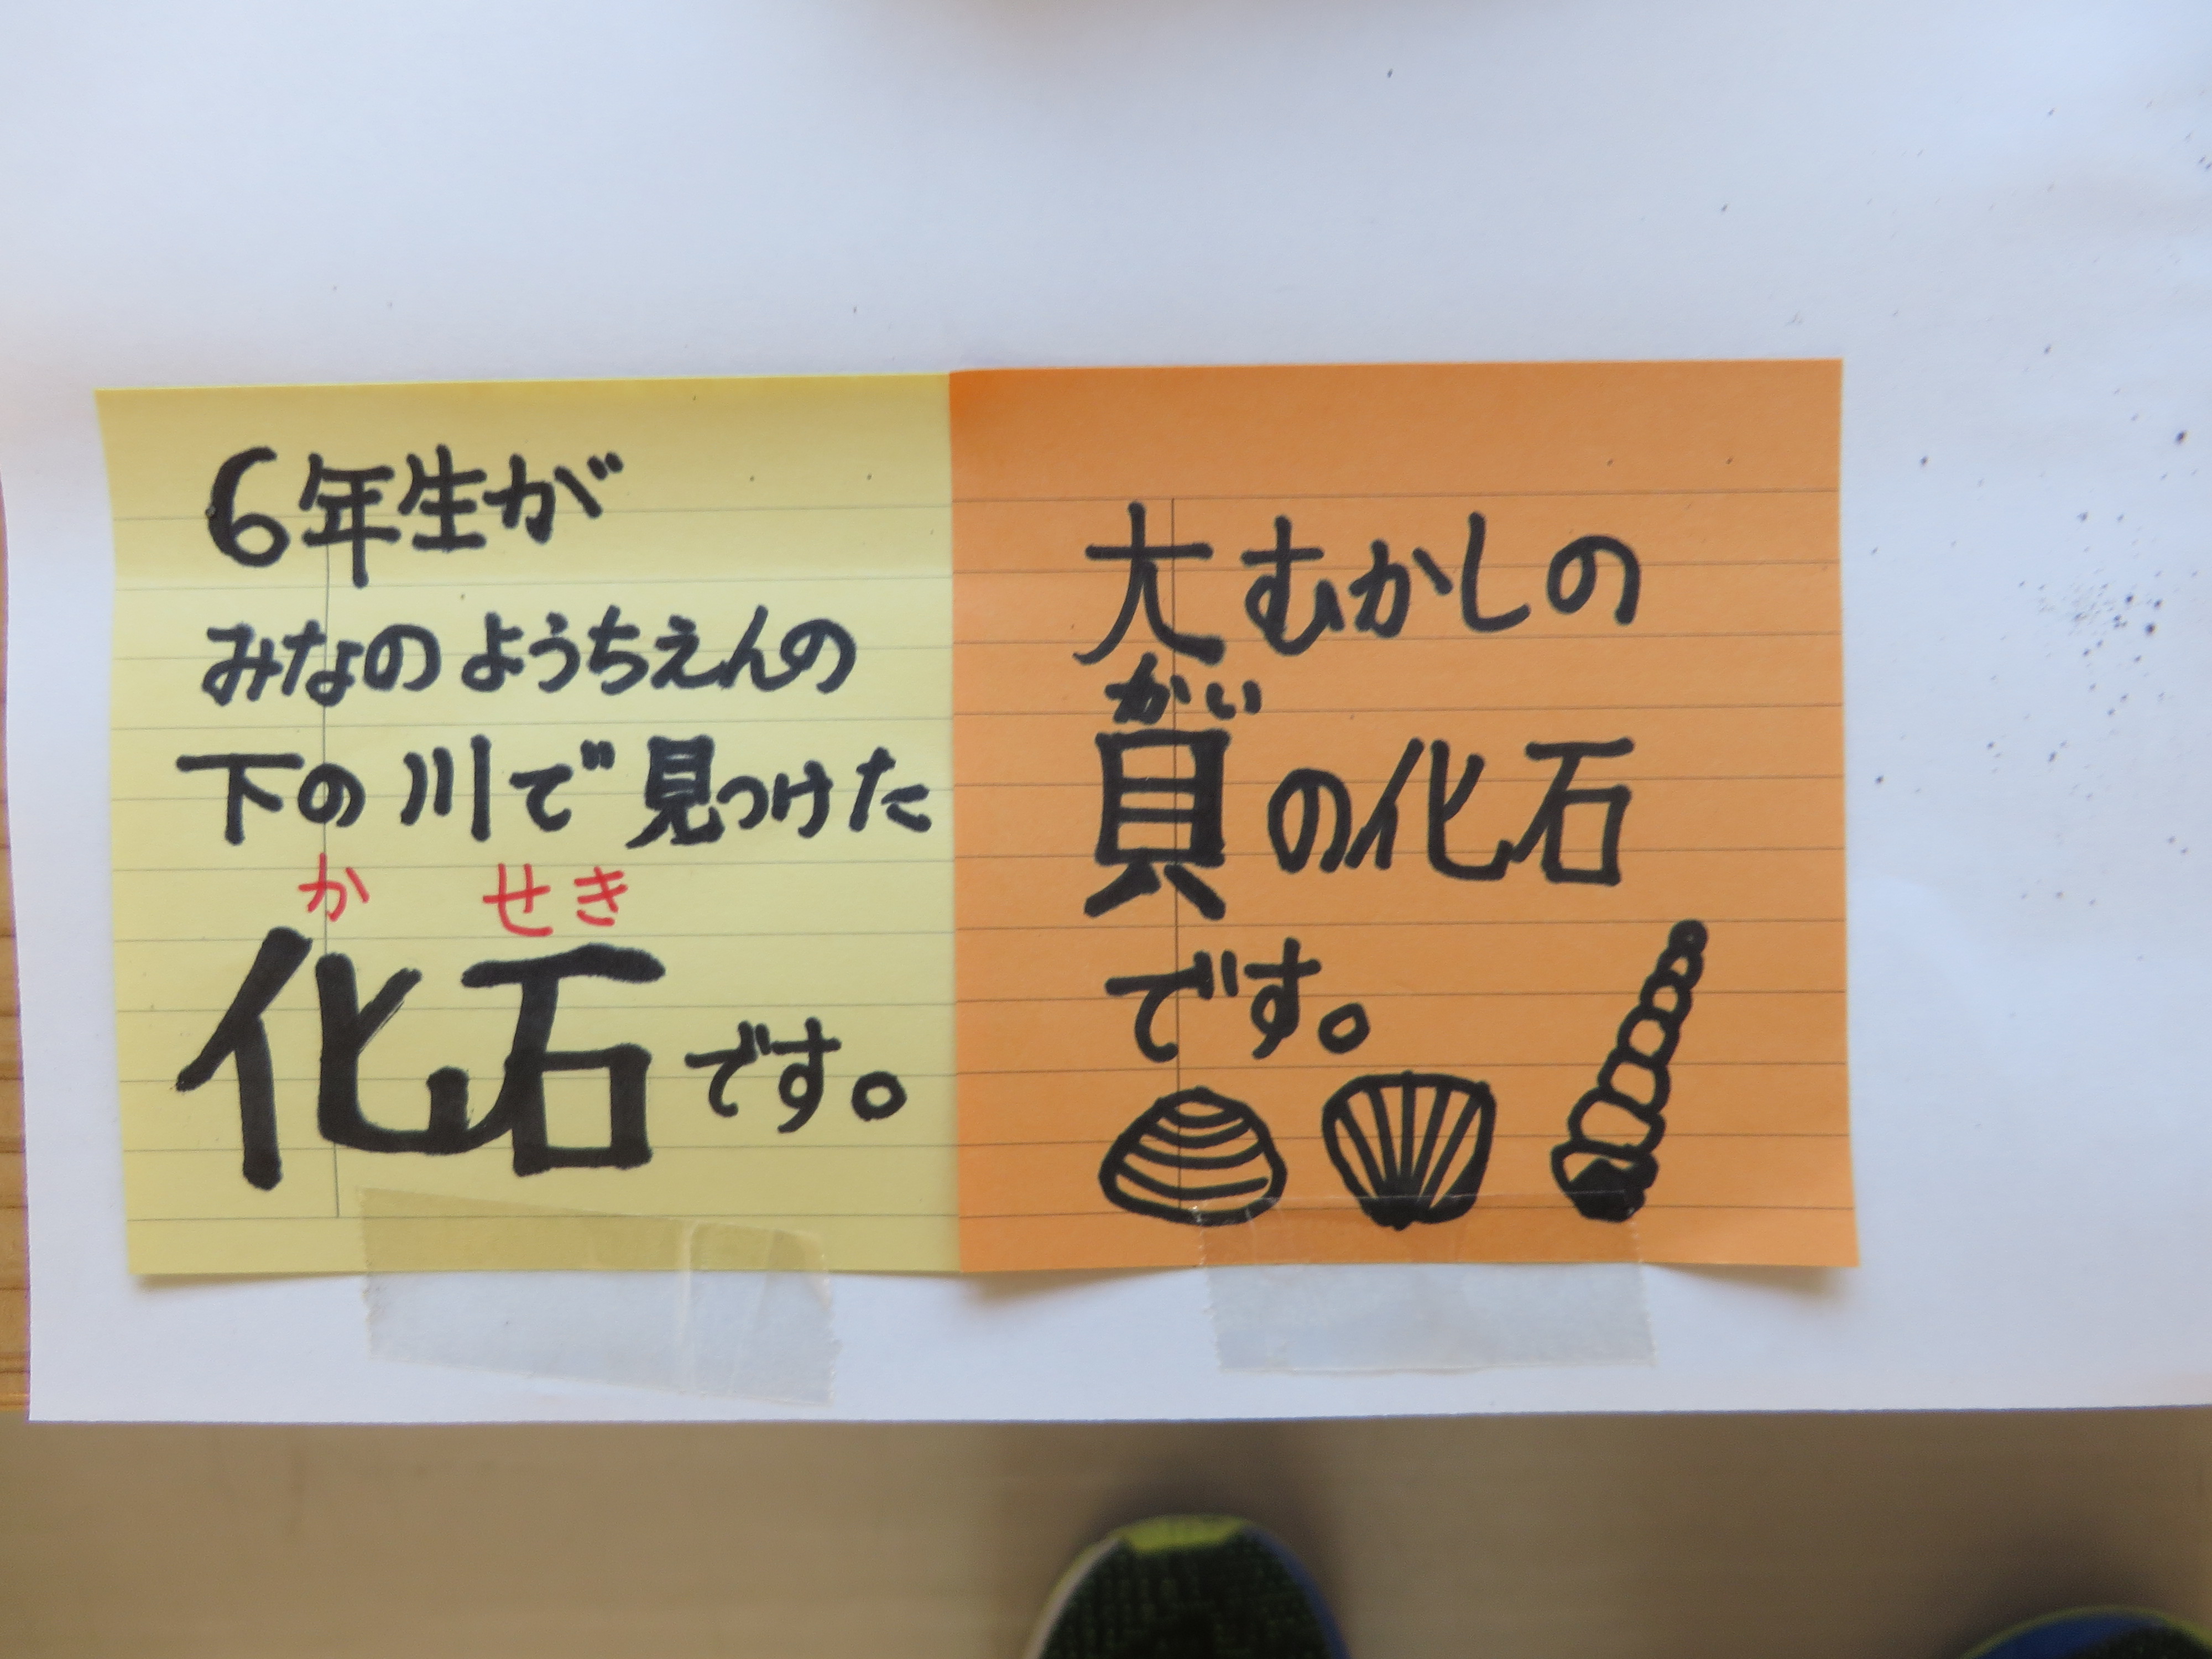 6年生が
みなのようちえんの
下の川で見つけた
か せき
化石です。
大むかしの
かい
貝の化石
です。